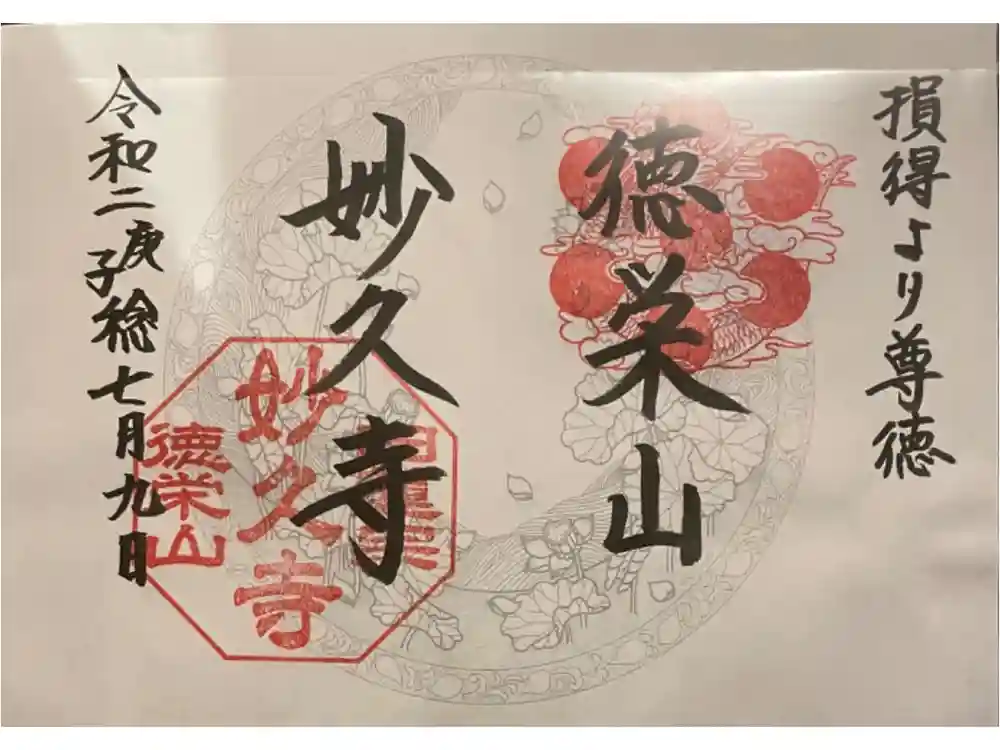 損得より尊徳
徳栄山
妙久寺
令和二庚子稔七月九日
妙久寺
徳栄山